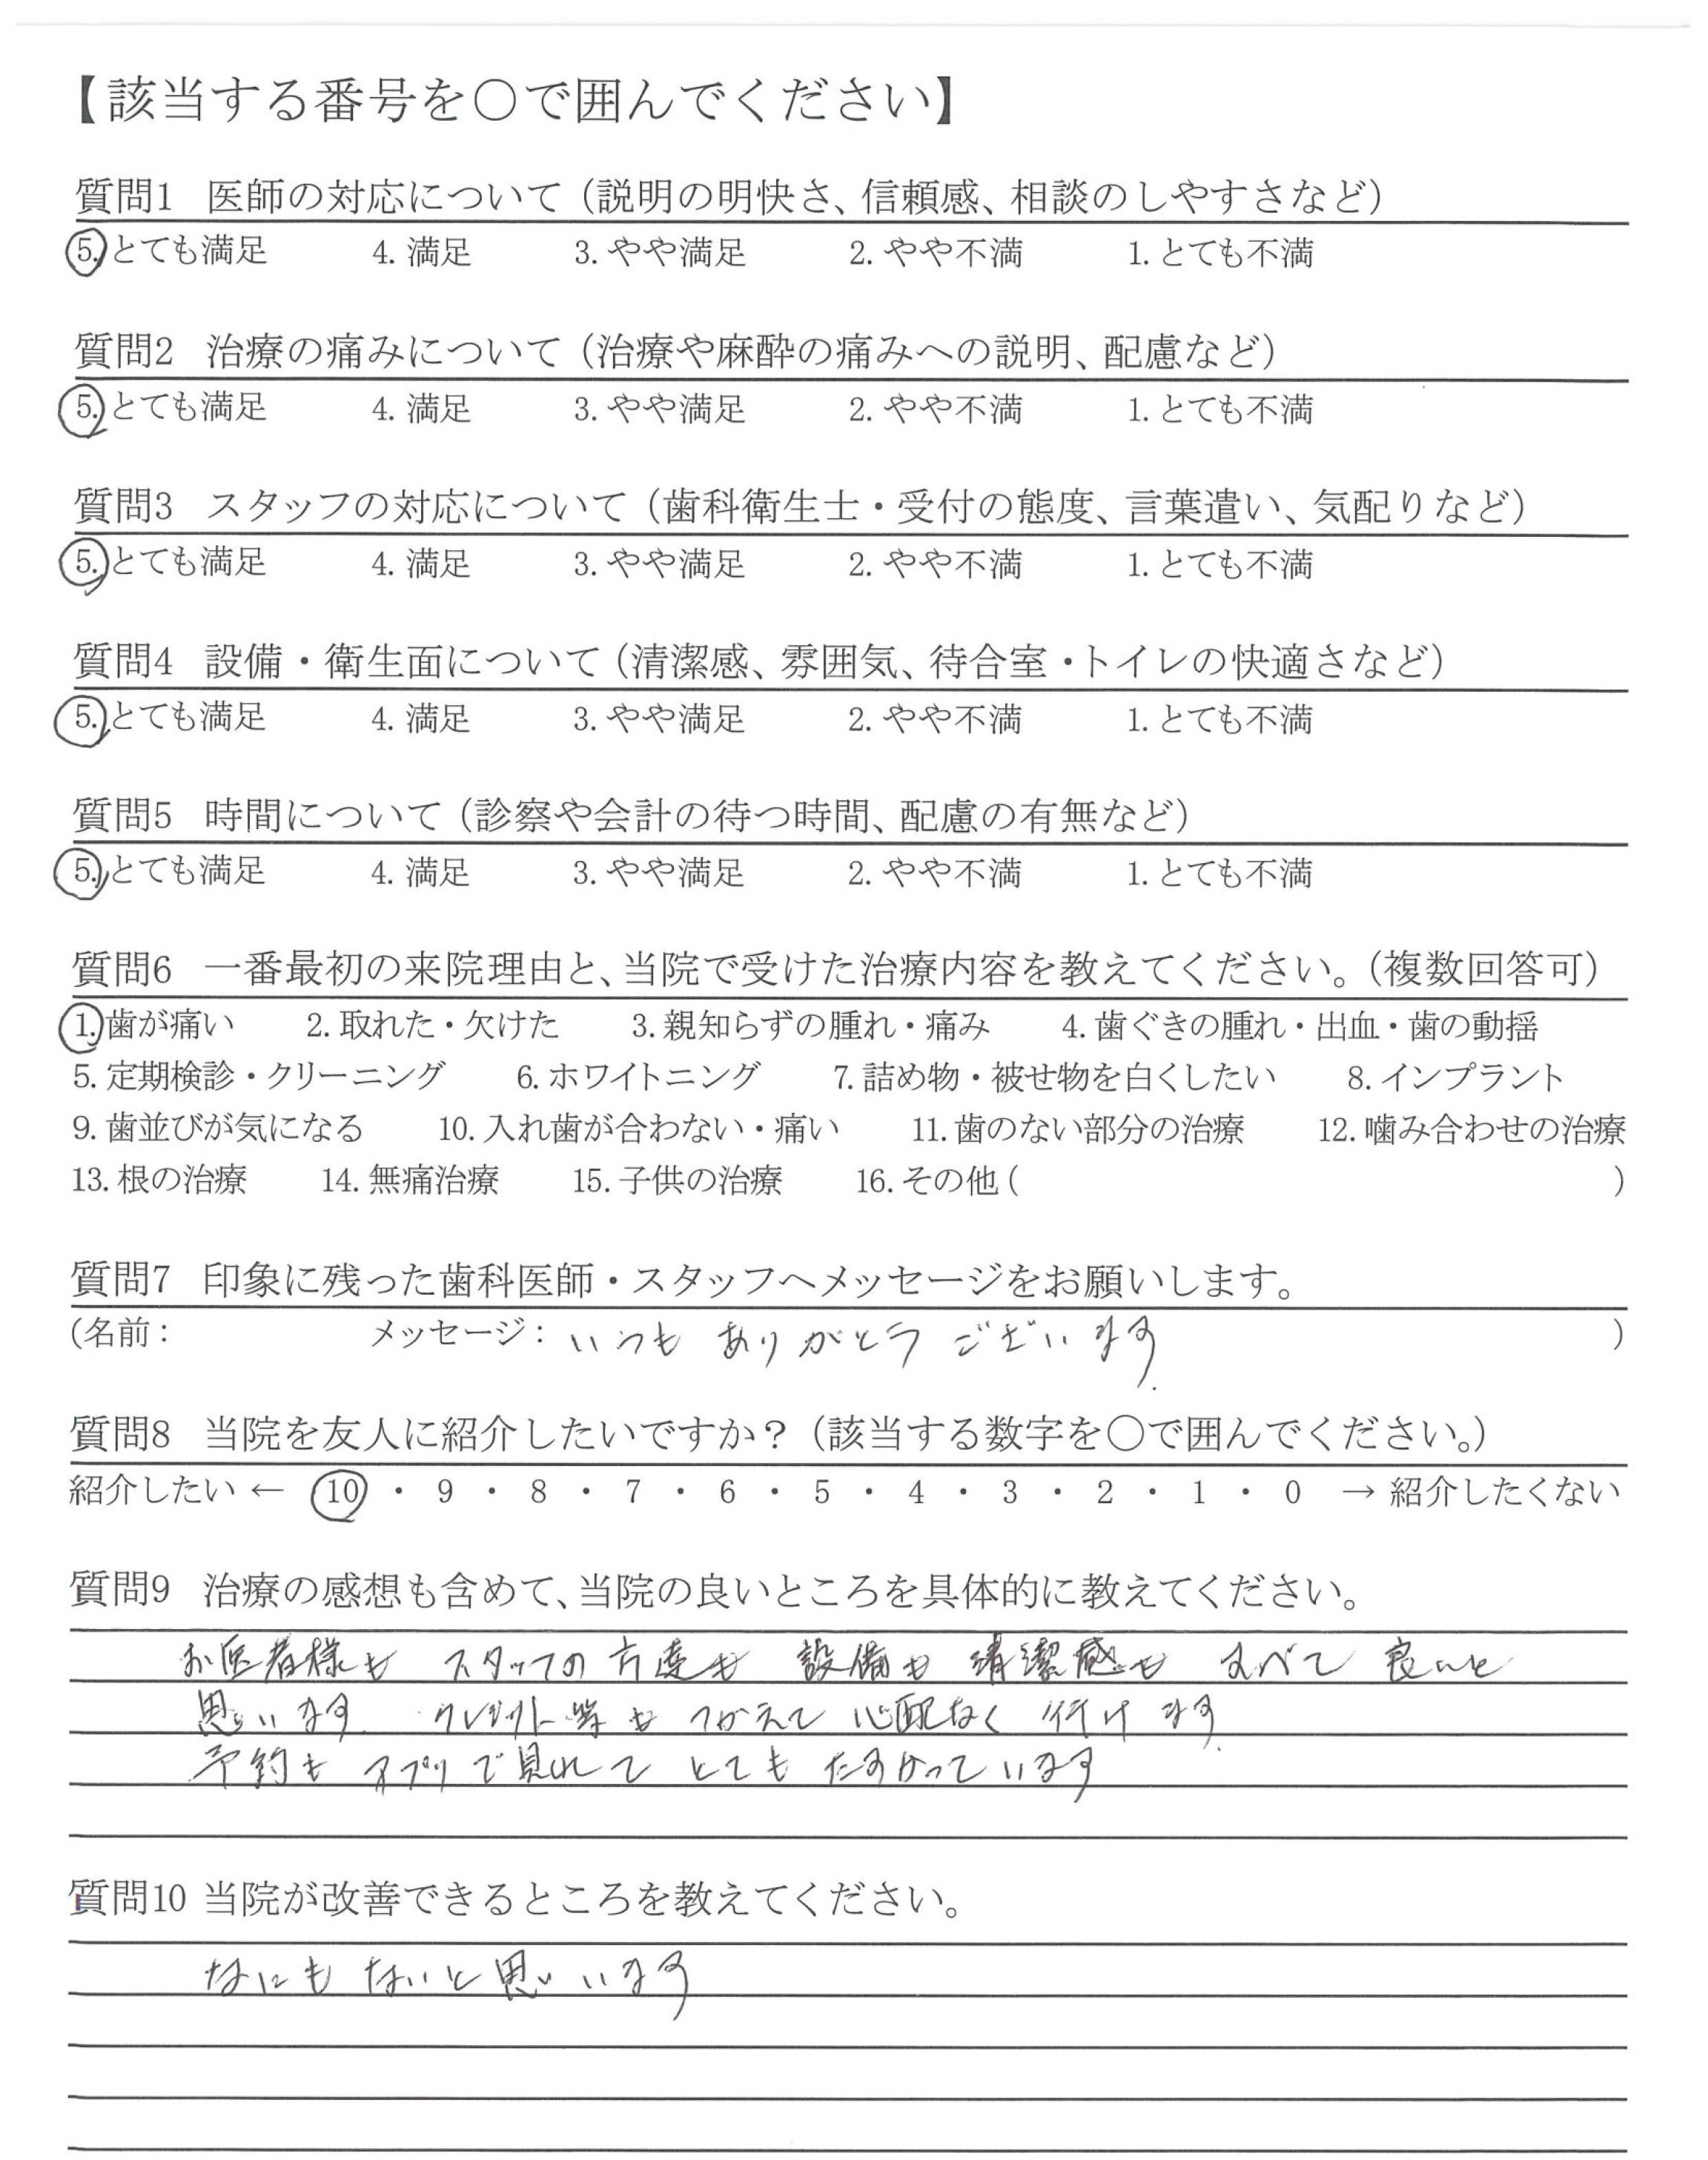 【該当する番号を○で囲んでください】
質問1 医師の対応について（説明の明快さ、信頼感、相談のしやすさなど）
5. とても満足 4. 満足 3. やや満足 2. やや不満 1. とても不満
質問2 治療の痛みについて（治療や麻酔の痛みへの説明、配慮など）
5. とても満足 4. 満足 3. やや満足 2. やや不満 1. とても不満
質問3 スタッフの対応について（歯科衛生士・受付の態度、言葉遣い、気配りなど）
5. とても満足 4. 満足 3. やや満足 2. やや不満 1. とても不満
質問4 設備・衛生面について（清潔感、雰囲気、待合室・トイレの快適さなど）
5. とても満足 4. 満足 3. やや満足 2. やや不満 1. とても不満
質問5 時間について（診察や会計の待つ時間、配慮の有無など）
5. とても満足 4. 満足 3. やや満足 2. やや不満 1. とても不満
質問6 一番最初の来院理由と、当院で受けた治療内容を教えてください。（複数回答可）
1. 歯が痛い 2. 取れた・欠けた 3. 親知らずの腫れ・痛み 4. 歯ぐきの腫れ・出血・歯の動揺
5. 定期検診・クリーニング 6. ホワイトニング 7. 詰め物・被せ物を白くしたい 8. インプラント
9. 歯並びが気になる 10. 入れ歯が合わない・痛い 11. 歯のない部分の治療 12. 噛み合わせの治療
13. 根の治療 14. 無痛治療 15. 子供の治療 16. その他 ( )
質問7 印象に残った歯科医師・スタッフへメッセージをお願いします。
(名前： メッセージ： いつも ありがとう ございます. )
質問8 当院を友人に紹介したいですか？（該当する数字を○で囲んでください。）
紹介したい ← 10 ・ 9 ・ 8 ・ 7 ・ 6 ・ 5 ・ 4 ・ 3 ・ 2 ・ 1 ・ 0 → 紹介したくない
質問9 治療の感想も含めて、当院の良いところを具体的に教えてください。
お医者様も スタッフの 方達も 設備も 清潔感も すべて 良いと
思います. クレジット等も つかえて 心配なく 行けます.
予約も アプリで見れて とても たすかっています
質問10 当院が改善できるところを教えてください。
なにも ないと思います